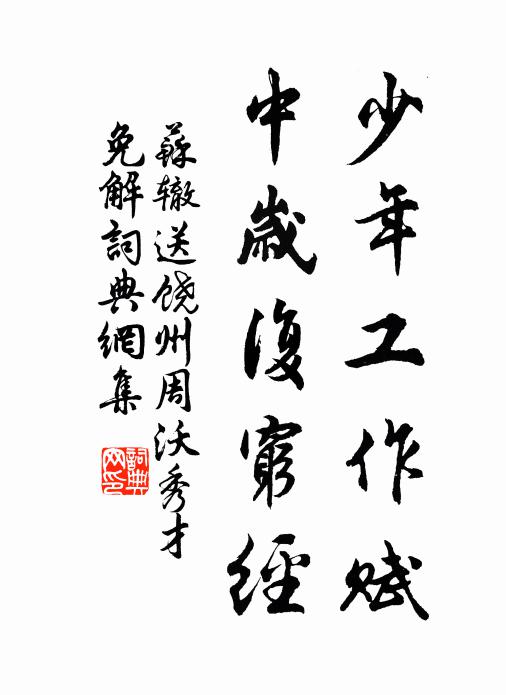 少年工作赋
中歲復窮經
蘇辙送饶州周沃秀才
免解詞典網集
詞典网印